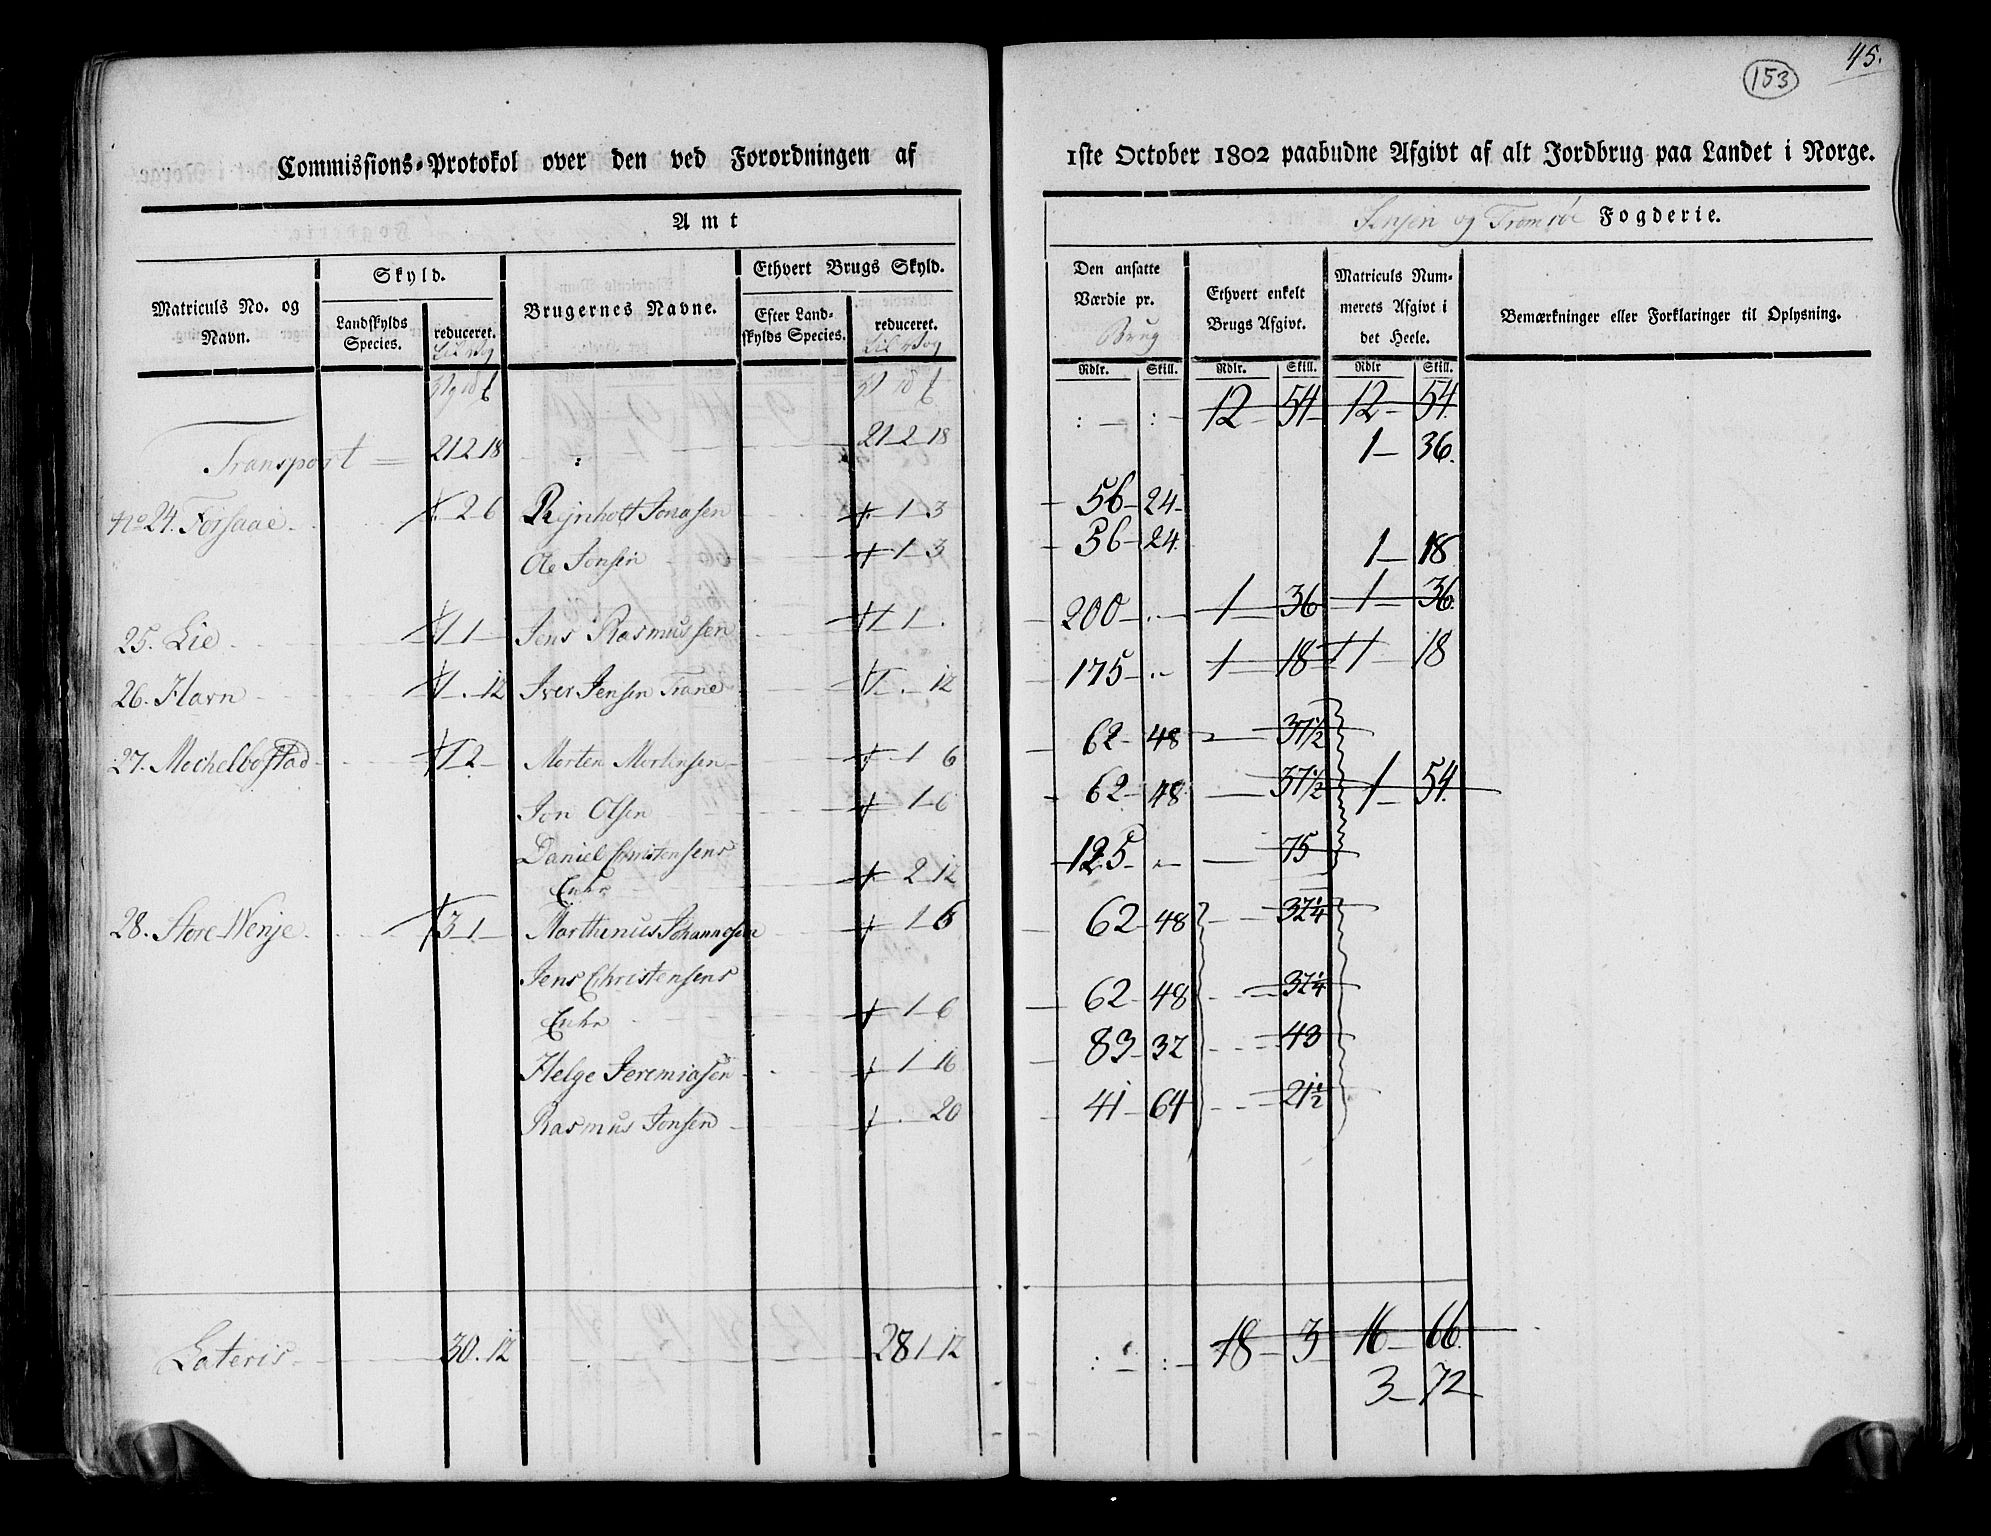 153
45.
Commissions-Protokol over den ved Forordningen af 1ste October 1802 paabudne Afgivt af alt Jordbrug paa Landet i Norge.
Amt
Senjen og Tromsøe Fogderie.
Matriculs No. og Navn.
Skyld.
Landskylds Species.
reduceret.
Brugernes Navne.
Ethvert Brugs Skyld.
Efter Landskylds Species.
reduceret.
Den ansatte Værdie pr. Brug
Ndlr. Skill.
Ethvert enkelt Brugs Afgivt.
Ndlr. Skill.
Matriculs Nummerets Afgivt i det Heele.
Ndlr Skill.
Bemærkninger eller Forklaringer til Oplysning.
12 54 12 54
Transport 21 2 18 21 2 18 1 36
no 24. Forsaae 2 6 Rejnholt Jonasen 1 3 56 24
Ole Jonsen 1 3 56 24 1 18
25. Lie 1 1 Jens Rasmussen 1 1 200 1 36 1 36
26. Havn 1 12 Iver Jensen Trane 1 12 175 1 18 1 18
27. Mechelbostad 1 2 Morten Mortensen 1 6 62 48 37 1/2
Jon Olsen 1 6 62 48 37 1/2 1 54
Daniel Christensens
Enke 2 12 125 75
28. Store Wenje 3 1 Marthinus Johannesen 1 6 62 48 32 1/4
Jens Christensens
Enke 1 6 62 48 32 1/4
Helge Jeremiasen 1 16 83 32 43
Rasmus Jonsen 20 41 64 21 1/2
Lateris 30 . 12 28 1 12 18 3 16 66
3 72